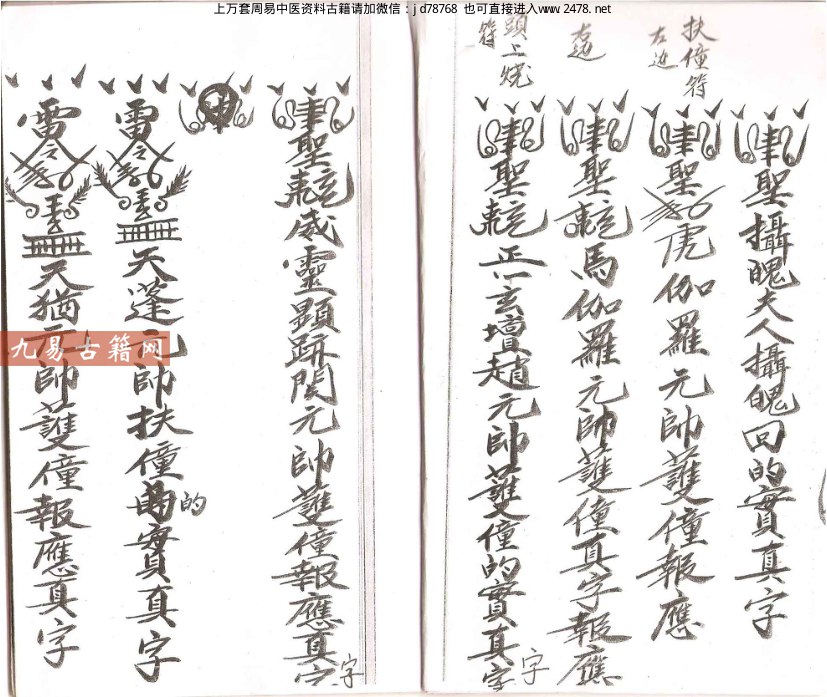 上万套周易中医资料古籍请加微信：jd78768 也可直接进入www.2478.net
扶僮符
聖攝魄夫人攝魄回的實真字
右边
聖虎伽羅元帥護僮報應
右边
聖馬伽羅元帥護僮真字報應
頭上燒符
聖玄壇趙元帥護僮的實真字
字
聖威靈顯跡関元帥護僮報應真字
字
雷令天蓬元帥扶僮的實真字
的
雷令天猶元帥護僮報應真字
九易古籍网